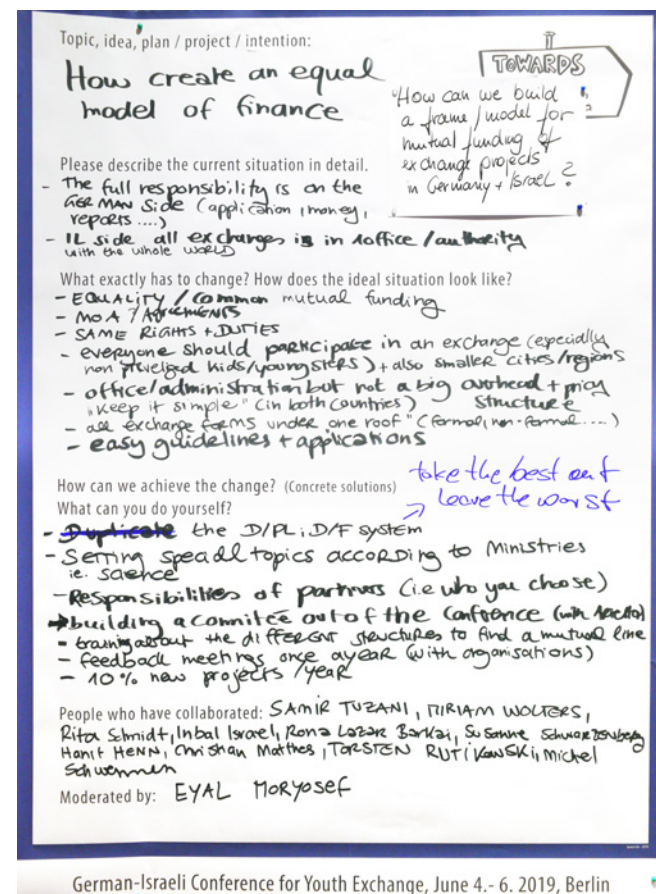 Topic, idea, plan / project / intention:
How create an equal
model of finance
TOWARDS
"How can we build
a frame / model for
mutual funding of
exchange projects
in Germany + Israel ?
Please describe the current situation in detail.
- The full responsibility is on the
GERMAN side (application, money,
reports ....)
- IL side all exchanges is in 1 office / authority
with the whole WORLD
What exactly has to change? How does the ideal situation look like?
- EQUALITY / Common mutual funding
- MOA / AGREEMENTS
- SAME RIGHTS + DUTIES
- everyone should participate in an exchange (especially
non privelged kids/youngsters) + also smaller cities/regions
- office/administration but not a big overhead +
structure
"Keep it simple" (in both countries)
- all exchange forms under one roof" (formal, non-formal ....)
- easy guidelines + applications
How can we achieve the change? (Concrete solutions)
What can you do yourself?
take the best out
leave the worst
- Duplicate the D/PL; D/F system
- Setting speciall topics according to Ministries
ie. science
- Responsibilities of partners (i.e who you choose)
building a commitee out of the Confrence (with
- training about the different structures to find a mutual line
- feedback meetings once a year (with organisations)
- 10% new projects /year
People who have collaborated: SAMIR TUZANI, MIRIAM WOLTERS,
Rita Schmidt, Inbal Israel, Rona Lazar Barkai, Susanne Schwarzenberg
Hanit HENN, Christian Matthes, TORSTEN RUTIKOWSKI, Michel
Schwennen
Moderated by: EYAL MORYOSEF
German-Israeli Conference for Youth Exchange, June 4.- 6. 2019, Berlin